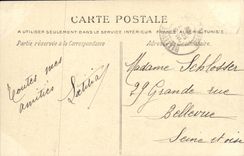 CARTE POSTALE
A UTILISER SEULEMENT DANS LE SERVICE INTÉRIEUR FRANCE, ALGÉRIE, TUNISIE
Partie réservée à la Correspondance
Toutes mes
amitiés
Madame Schlosser
29 Grande rue
Bellevue
Seine et oise